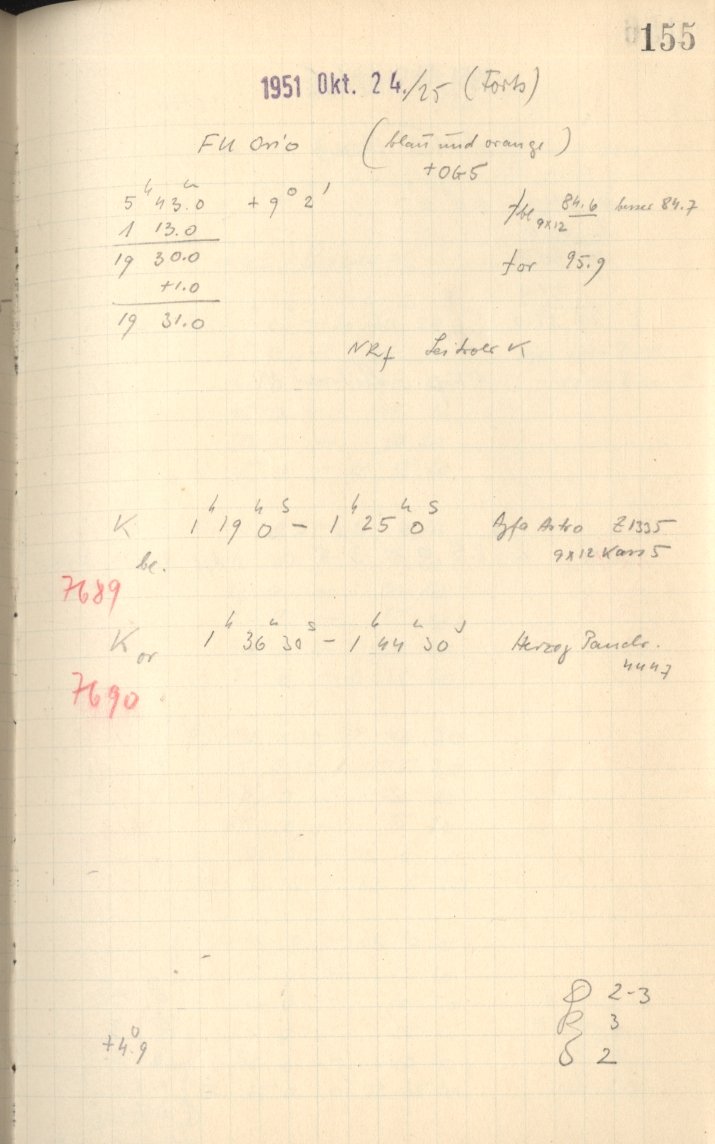 155
1951 Okt. 24./25 (Forts)
FU Orio (blau und orange)
+OG5
5h 43.0m +9° 2'
1 13.0
19 30.0
+1.0
19 31.0
fbl 9x12 84.6 besser 84.7
for 95.9
NRf Leitrohr K
K be. 1h 19m 0s – 1h 25m 0s Agfa Astro Z1335
9x12 Kass 5
7689
K or 1h 36m 30s – 1h 44m 30s Herzog Panchr.
4447
7690
2-3
3
+4°.9
2